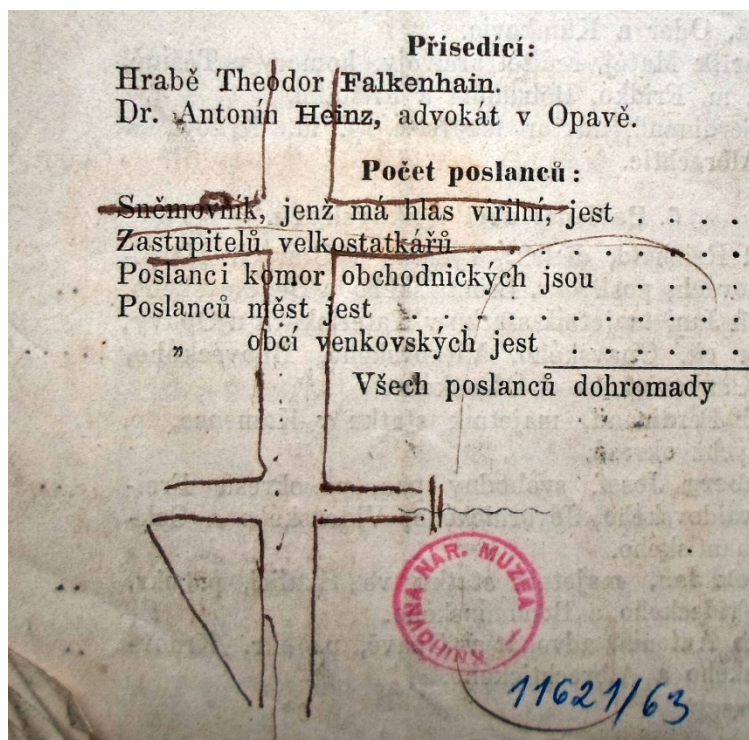 Přísedící:
Hrabě Theodor Falkenhain.
Dr. Antonín Heinz, advokát v Opavě.
Počet poslanců:
Sněmovník, jenž má hlas virilní, jest . . . .
Zastupitelů velkostatkářů . . . . . . .
Poslanci komor obchodnických jsou . . . .
Poslanců měst jest . . . . . . . . .
„ obcí venkovských jest . . . . . .
Všech poslanců dohromady
KNIHOVNA NÁR. MUZEA
11621/63